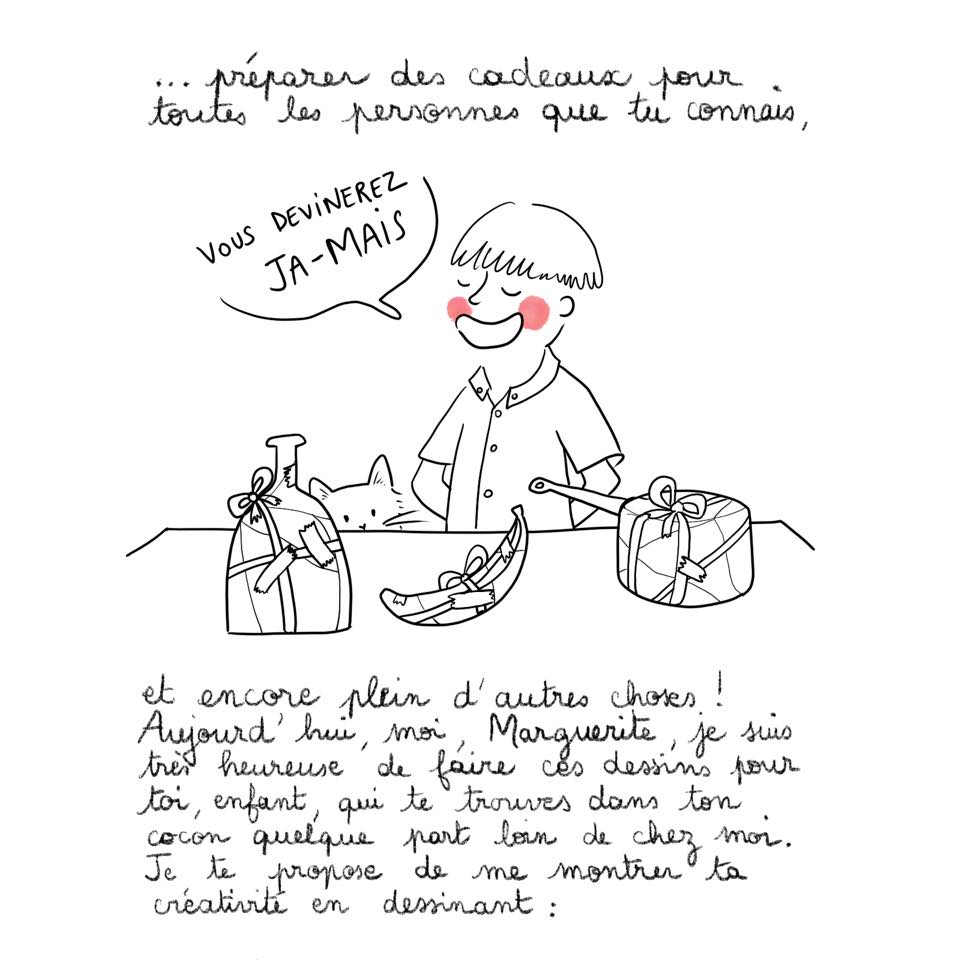 ... préparer des cadeaux pour
toutes les personnes que tu connais,
VOUS DEViNEREZ
JA-MAiS
et encore plein d'autres choses !
Aujourd'hui, moi, Marguerite, je suis
très heureuse de faire ces dessins pour
toi, enfant, qui te trouves dans ton
cocon quelque part loin de chez moi.
Je te propose de me montrer ta
créativité en dessinant :